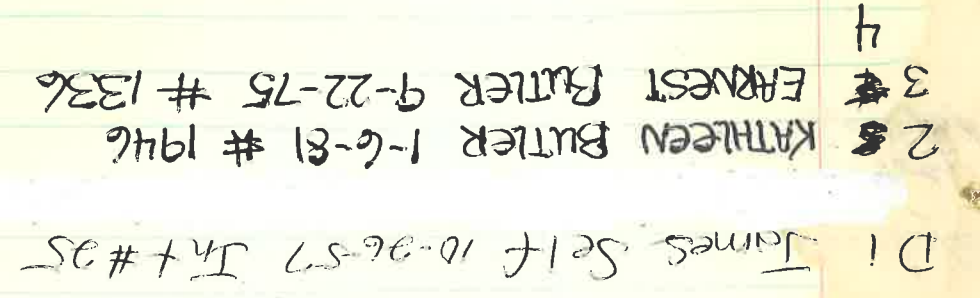 D 1 James Self 10-26-57 Int #25
2 KATHLEEN BUTLER 1-6-81 # 1946
3 EARNEST BUTLER 9-22-75 # 1336
4